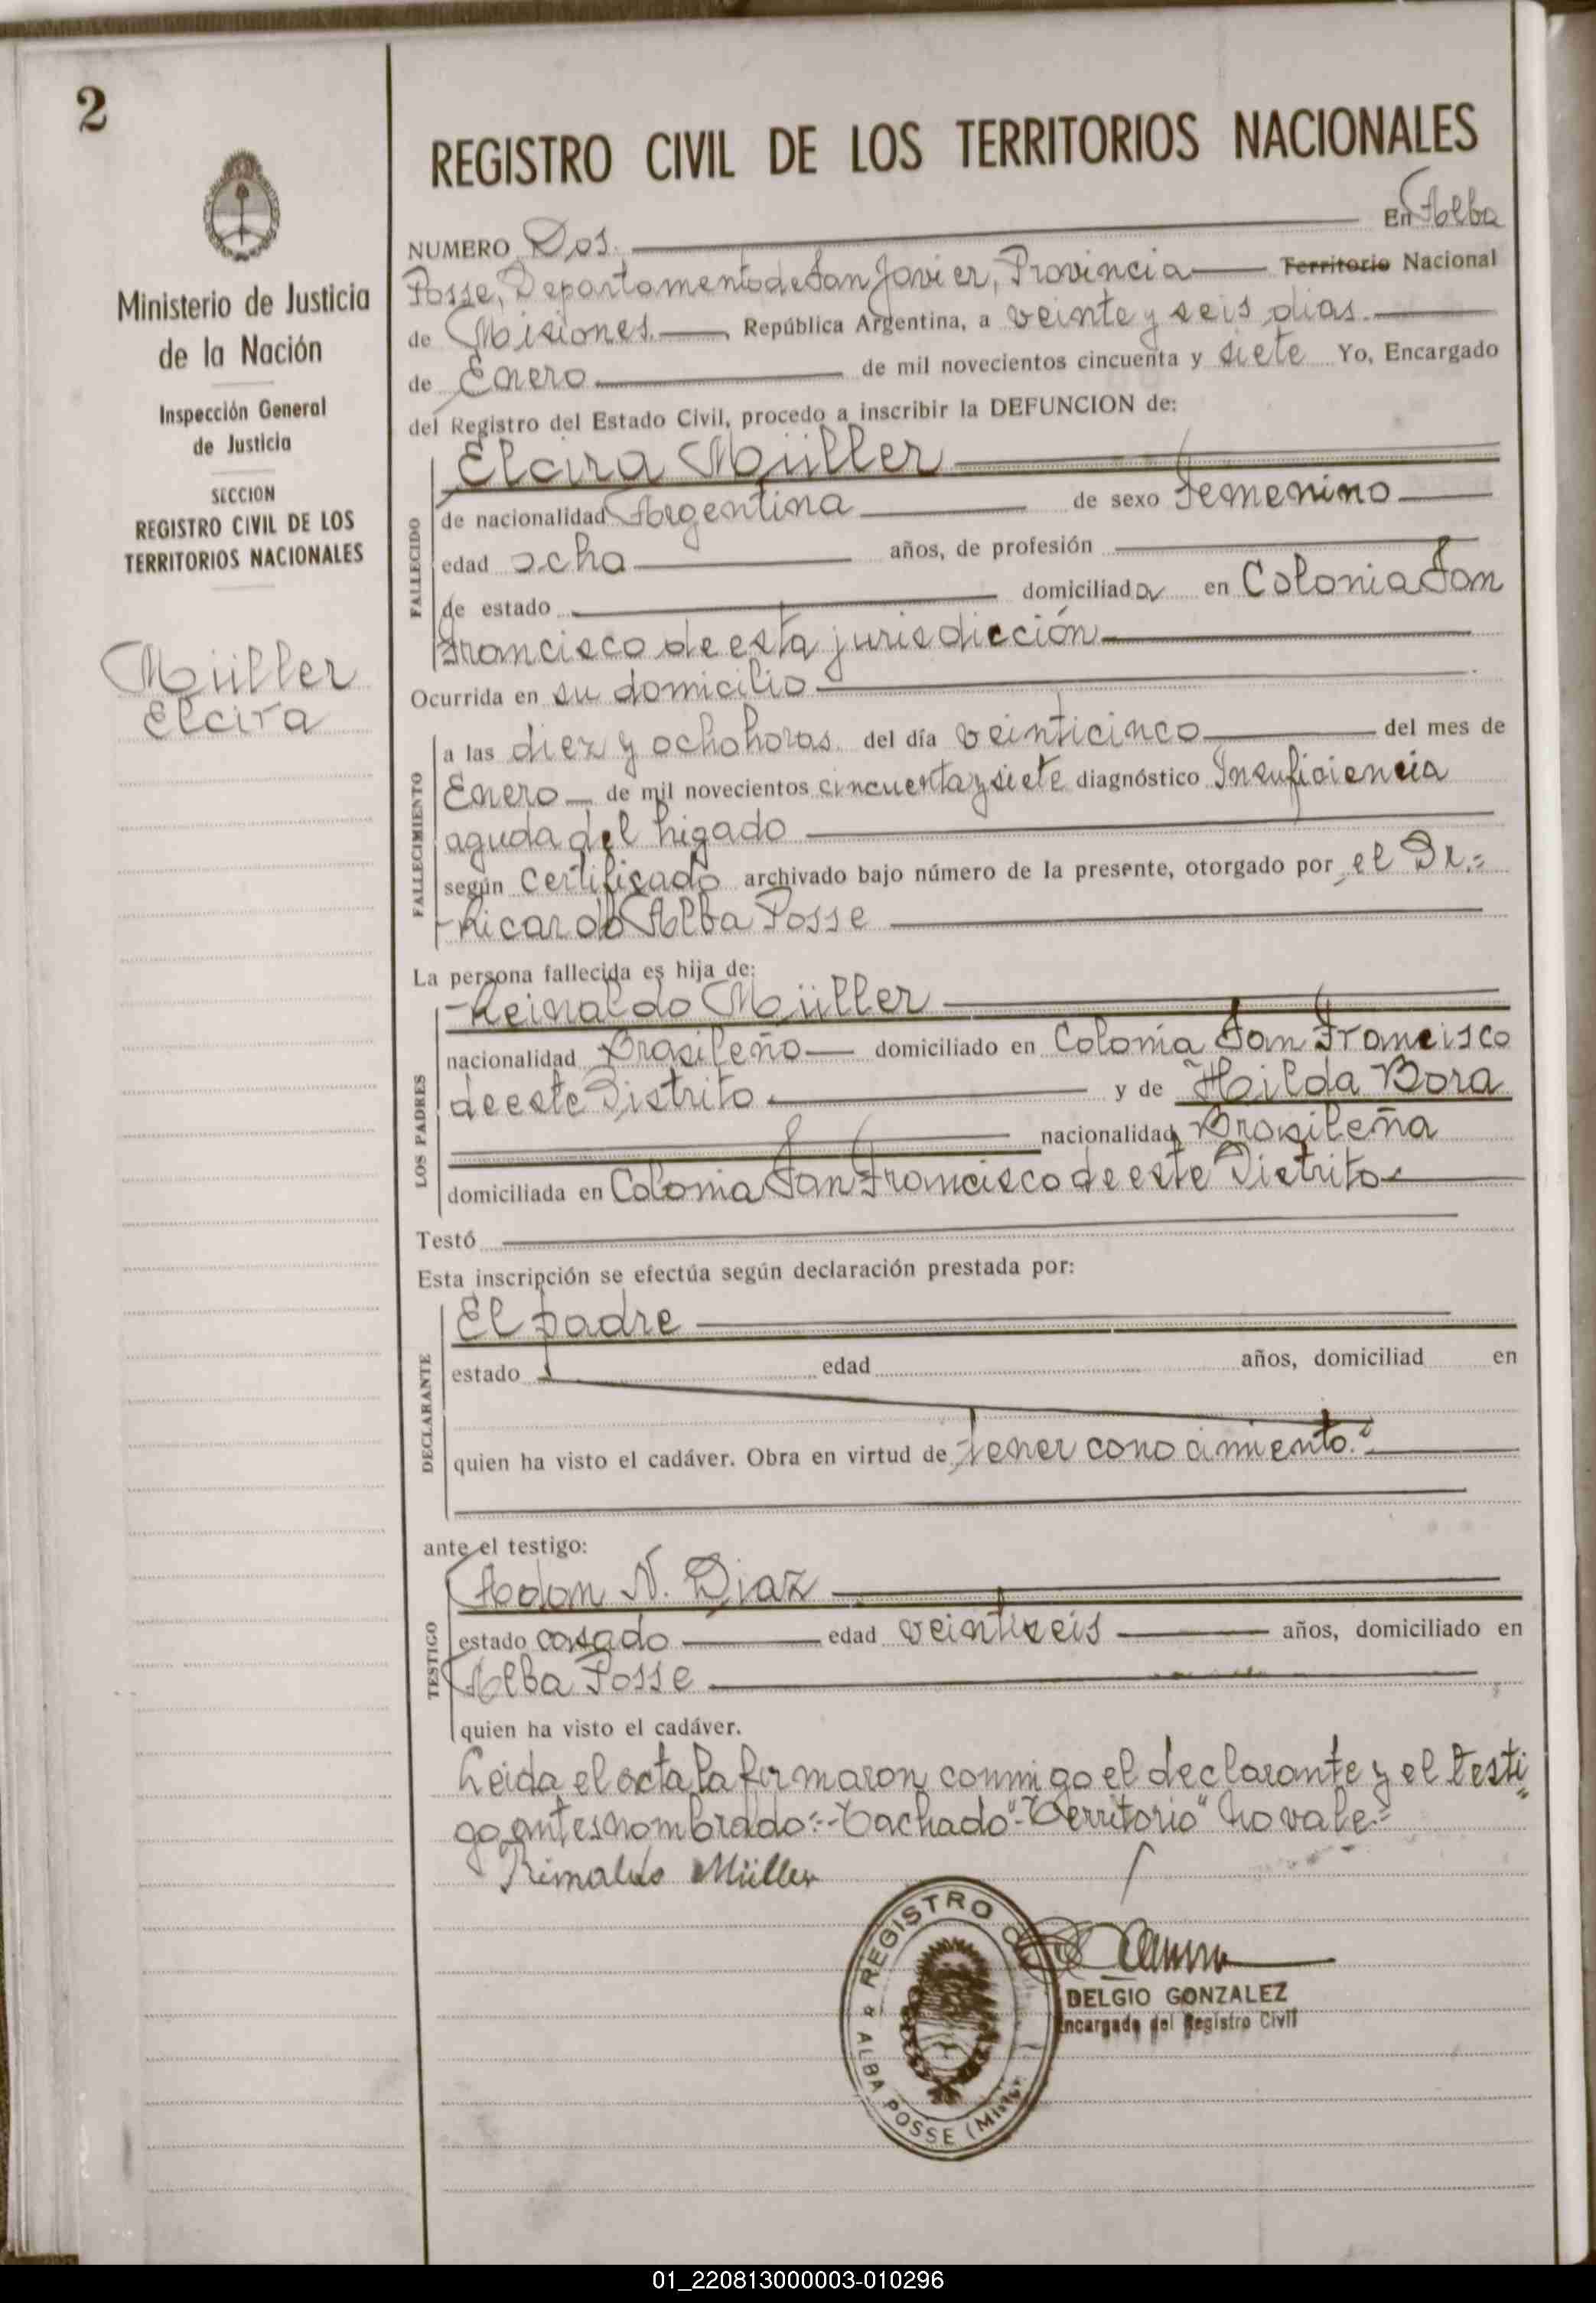 2
Ministerio de Justicia
de la Nación
Inspección General
de Justicia
SECCION
REGISTRO CIVIL DE LOS
TERRITORIOS NACIONALES
Müller
Elcira
REGISTRO CIVIL DE LOS TERRITORIOS NACIONALES
NUMERO Dos. En Alba
Posse, Departamento de San Javier, Provincia Territorio Nacional
de Misiones. , República Argentina, a veinte y seis dias.
de Enero de mil novecientos cincuenta y siete Yo, Encargado
del Registro del Estado Civil, procedo a inscribir la DEFUNCION de:
Elcira Müller
FALLECIDO
de nacionalidad Argentina de sexo Femenino
edad ocho años, de profesión
de estado domiciliada en Colonia San
Francisco de esta jurisdicción
Ocurrida en su domicilio
FALLECIMIENTO
a las diez y ocho horas. del día veinticinco del mes de
Enero de mil novecientos cincuenta y siete diagnóstico Insuficiencia
aguda del higado
según Certificado archivado bajo número de la presente, otorgado por el Dr.=
Ricardo Alba Posse
La persona fallecida es hija de:
LOS PADRES
Reinaldo Müller
nacionalidad Brasileño domiciliado en Colonia San Francisco
de este Distrito y de Hilda Bora
nacionalidad Brasileña
domiciliada en Colonia San Francisco de este Distrito
Testó
Esta inscripción se efectúa según declaración prestada por:
DECLARANTE
El padre
estado edad años, domiciliad en
quien ha visto el cadáver. Obra en virtud de tener conocimiento.=
ante el testigo:
TESTIGO
Adon N. Diaz
estado casado edad veintiseis años, domiciliado en
Alba Posse
quien ha visto el cadáver.
Leida el acta la firmaron conmigo el declarante y el testi
go antes nombrado=-Tachado"-Territorio" No vale=
Müller
REGISTRO
ALBA POSSE
DELGIO GONZALEZ
Encargado del Registro Civil
01_220813000003-010296